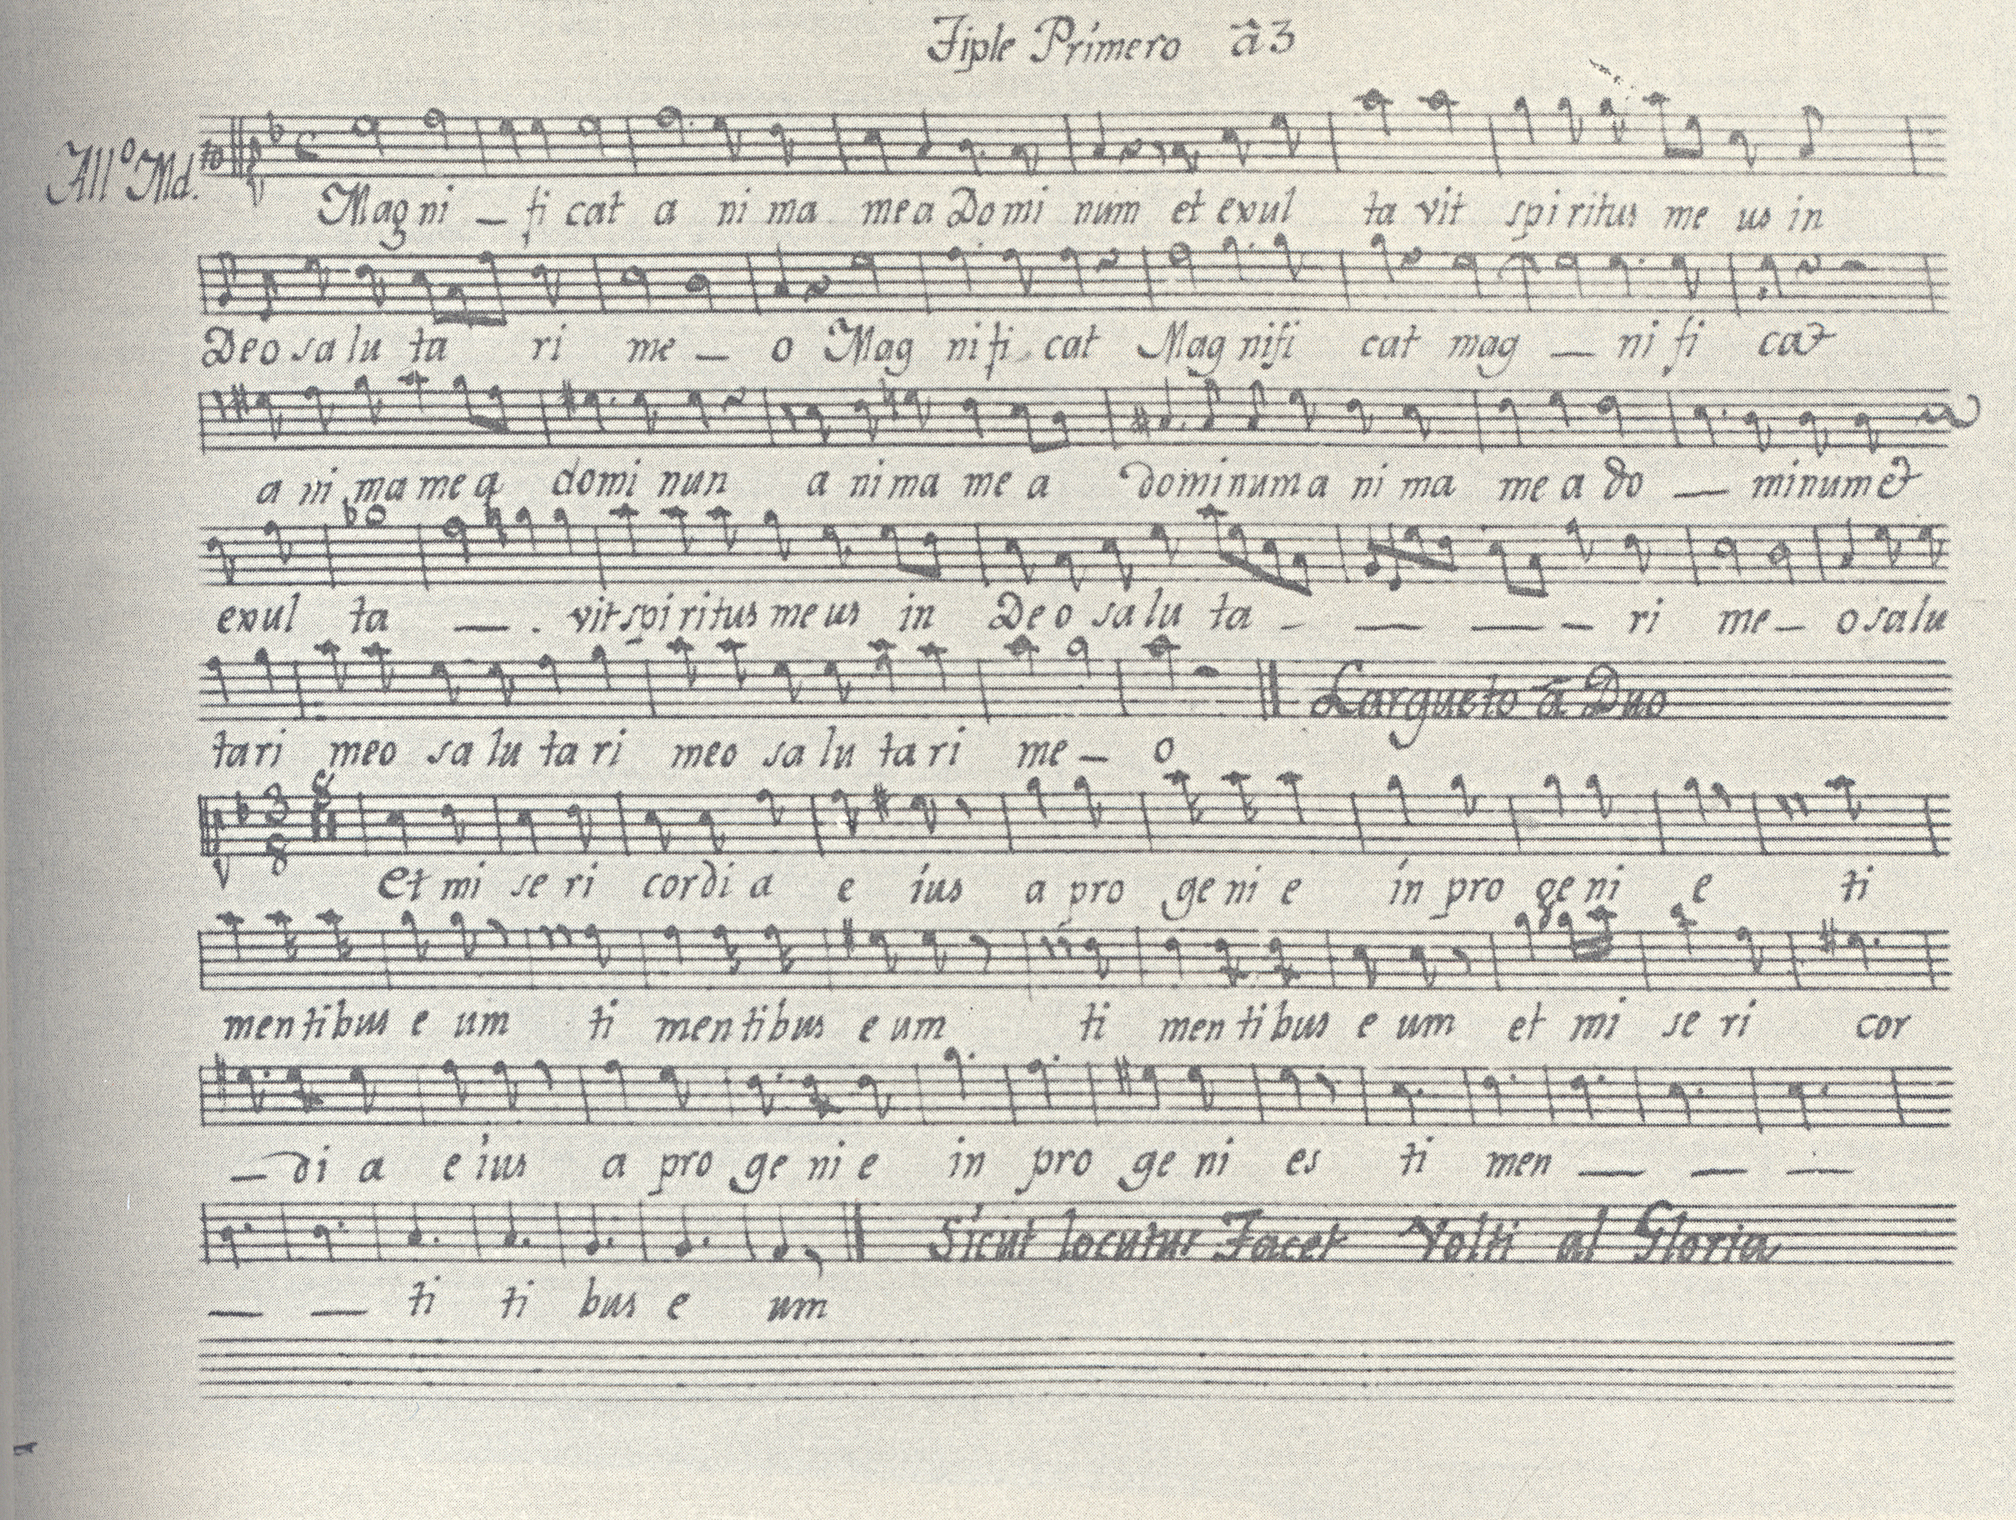 Tiple Primero â 3
All.º Md.to
Magni — fi cat a ni ma mea Domi num et exul ta vit spi ritus me us in
Deo sa lu ta ri me — o Mag nifi cat Mag nifi cat mag — ni fi cat
a ni ma me a domi nun a nima me a dominum a ni ma me a do — minum et
exul ta — . vit spi ritus me us in Deo sa lu ta - — — - ri me — o salu
tari meo sa lu ta ri meo sa lu ta ri me — o
Largueto â Duo
3
8
Et mi se ri cordi a e ius a pro ge ni e in pro ge ni e ti
men ti bus e um ti men ti bus e um ti men ti bus e um et mi se ri cor
— di a e ius a pro ge ni e in pro ge ni es ti men — — —
— — ti ti bus e um
Sicut locutus Facet Volti al Gloria